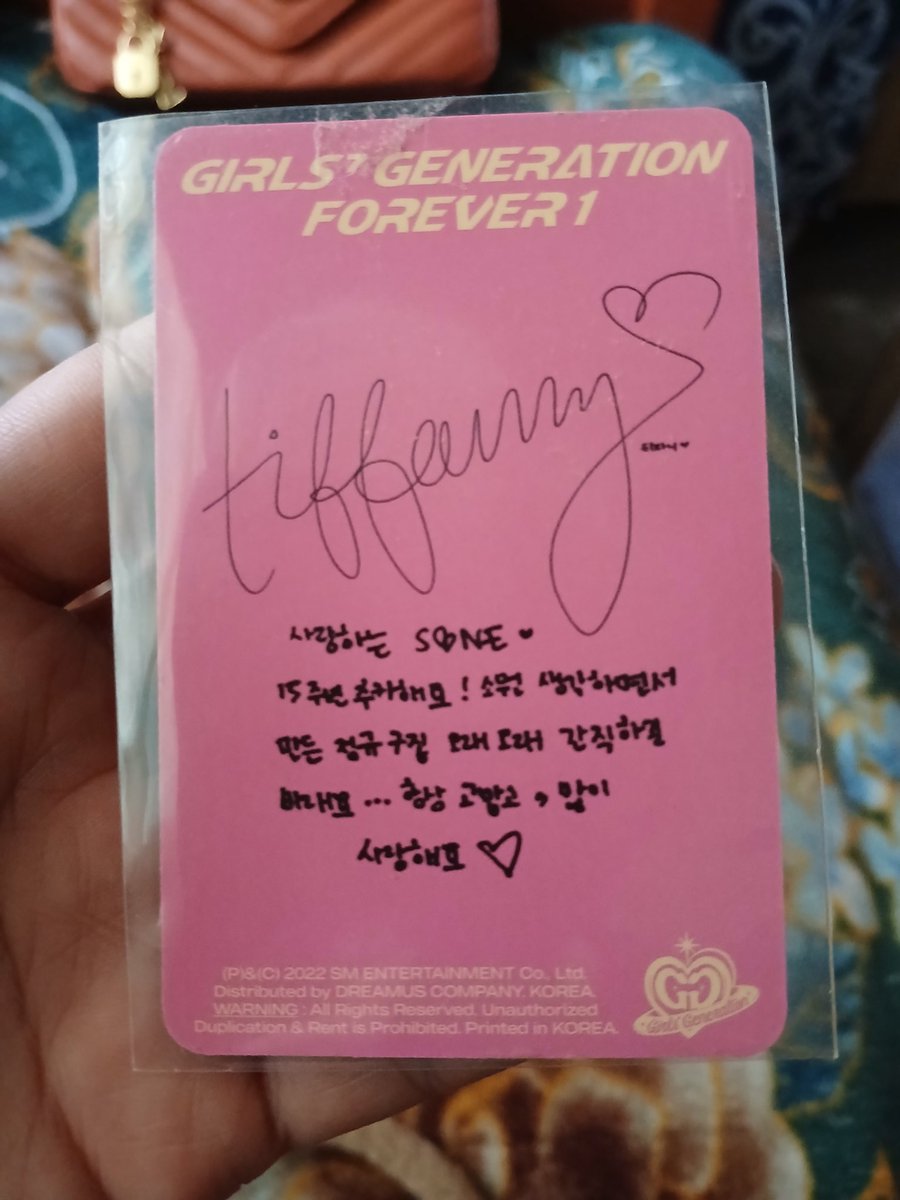 GIRLS' GENERATION
FOREVER 1
tiffany
티파니♥
사랑하는 S♡NE ♥
15주년 축하해요! 소원 생각하면서
만든 정규 구집 오래오래 간직하길
바래요... 항상 고맙고, 많이
사랑해요 ♡
(P)&(C) 2022 SM ENTERTAINMENT Co., Ltd.
Distributed by DREAMUS COMPANY. KOREA.
WARNING : All Rights Reserved. Unauthorized
Duplication & Rent is Prohibited. Printed in KOREA.
GG
Girls' Generation